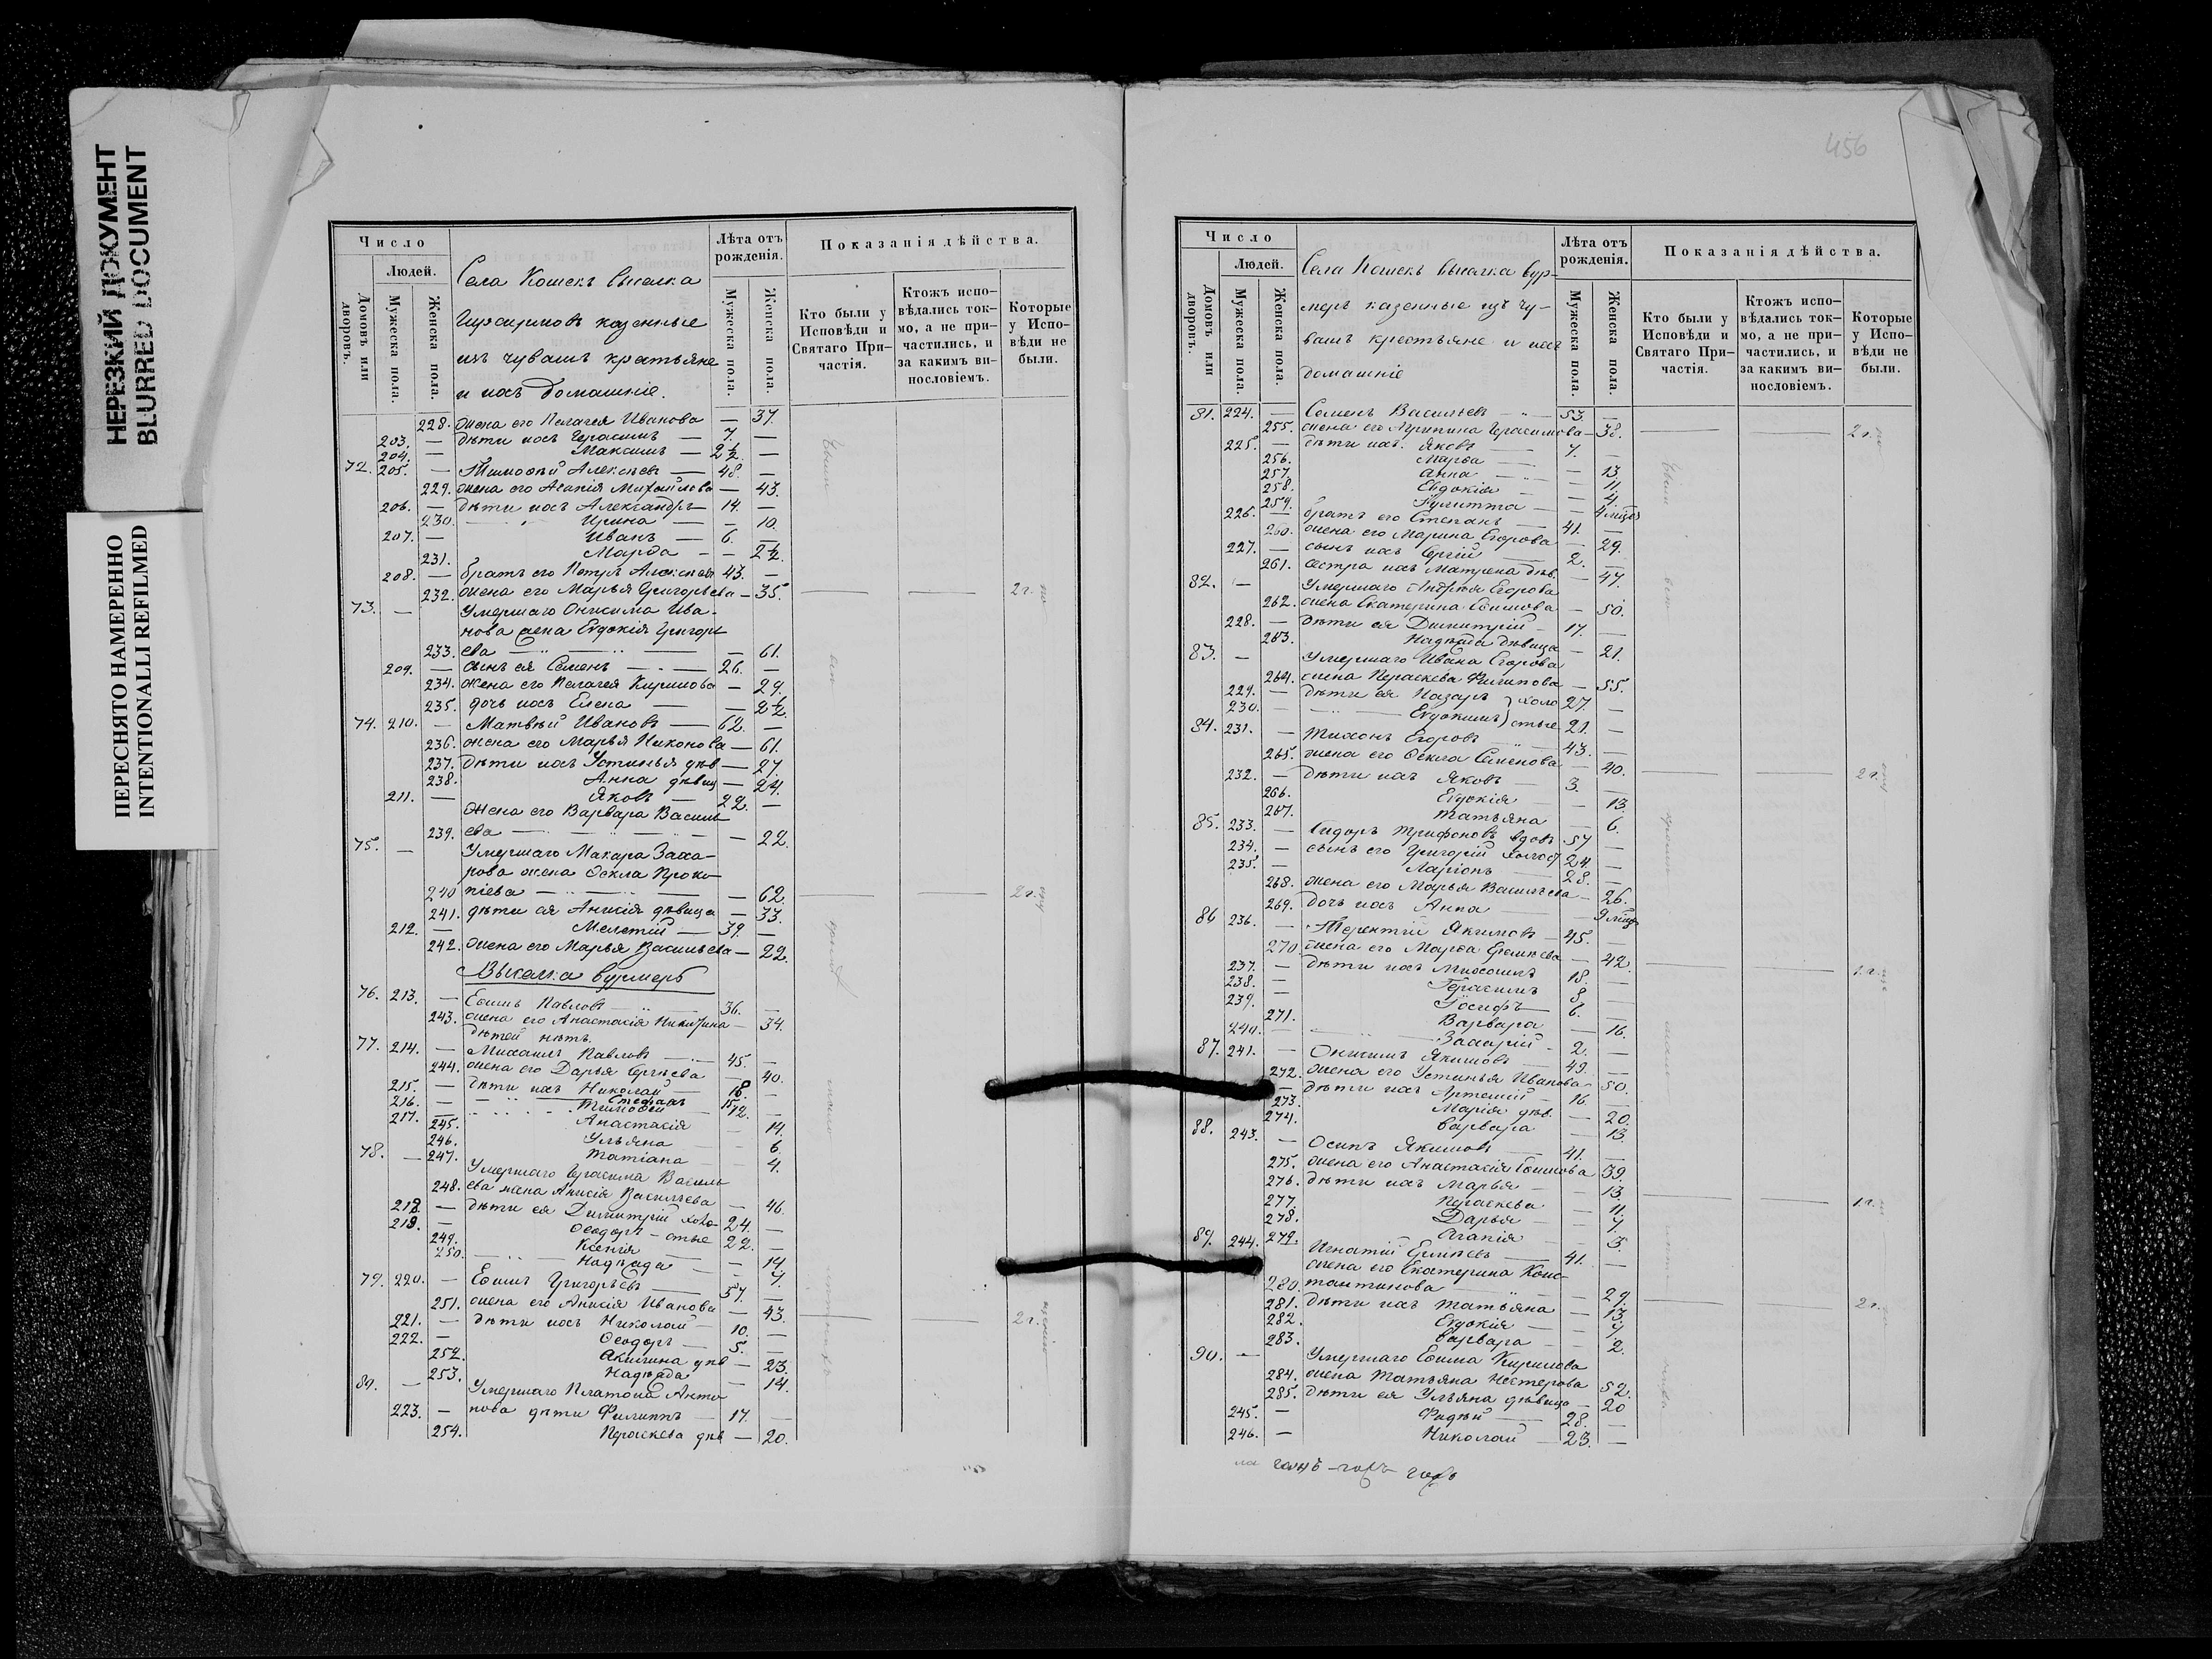 НЕРЕЗКИЙ ДОКУМЕНТ
BLURRED DOCUMENT
ПЕРЕСНЯТО НАМЕРЕННО
INTENTIONALLI REFILMED
Число
Людей.
Домовъ или дворовъ.
Мужеска пола.
Женска пола.
Села Кошекъ выселка
казенные
изъ чувашъ крестьяне
и ихъ домашніе.
Лѣта отъ рожденія.
Мужеска пола.
Женска пола.
Показанія дѣйства.
Кто были у Исповѣди и Святаго Причастія.
Ктожъ исповѣдались токмо, а не причастились, и за какимъ винословіемъ.
Которые у Исповѣди не были.
228. жена его Пелагея Иванова — 37.
203. — дѣти ихъ Герасимъ — 7. —
204. — Максимъ — 2½ —
72. 205. — Тимофѣй Алексѣевъ — 48. —
229. жена его Агапія Михайлова — 43.
206. — дѣти ихъ Александръ — 14. —
230. Ирина — 10.
207. — Иванъ — 6. —
231. Марѳа — 2½.
208. — братъ его Петръ Алексѣевъ 43. —
232. жена его Марья Григорьева — 35. 2 г.
73. — Умершаго Онисима Ива-
нова жена Евдокія Григорь
233. ева — 61.
209. — сынъ ея Семенъ — 26. —
234. жена его Пелагея Кирилова — 29.
235. дочь ихъ Елена — 2½.
74. 210. — Матвѣй Ивановъ — 62. —
236. жена его Марья Никонова — 61.
237. дѣти ихъ Устинья дѣв — 27
238. Анна дѣвиц — 24.
211. — Яковъ — 22. —
жена его Варвара Василь
239. ева — 22.
75. — Умершаго Макара Заха-
рова жена Ѳекла Проко
240 піева — 62. 2 г.
241. дѣти ея Анисія дѣвица — 33.
212. — Мелетій — 39. —
242. жена его Марья Васильева — 22.
Выселка Вурмеръ
76. 213. — Ефимъ Павловъ 36. —
243. жена его Анастасія Никитина — 34.
дѣтей нѣтъ.
77. 214. — Михаилъ Павловъ 45. —
244. жена его Дарья Сергѣева — 40.
215. — дѣти ихъ Николай — 18. —
216. — Стефанъ 15
217. — Тимофей — 12. —
245. Анастасія — 14.
246. Ульяна — 6.
247. Татіана — 4.
78. — Умершаго Герасима Василь
248. ева жена Анисія Васильева — 46.
218. — дѣти ея Димитрій холо 24. —
219. — Ѳеодоръ — стые 22. —
249. Ксенія — 14.
250. Надежда — 7.
79. 220. — Ефимъ Григорьевъ 57. —
251. жена его Анисія Иванова — 43.
221. — дѣти ихъ Николай — 10. — 2 г.
222. — Ѳеодоръ — 5. —
252. Акилина дѣв — 23.
253. Надежда — 14.
80. — Умершаго Платона Анто
223. — нова дѣти Филиппъ — 17. —
254. Параскева дѣв — 20.
456
Число
Людей.
Домовъ или дворовъ.
Мужеска пола.
Женска пола.
Села Кошекъ выселка Вур-
меръ казенные изъ чу-
вашъ крестьяне и ихъ
домашніе
Лѣта отъ рожденія.
Мужеска пола.
Женска пола.
Показанія дѣйства.
Кто были у Исповѣди и Святаго Причастія.
Ктожъ исповѣдались токмо, а не причастились, и за какимъ винословіемъ.
Которые у Исповѣди не были.
81. 224. — Семенъ Васильевъ — 53. —
255. жена его Агрипина Герасимова — 38. 2 г.
225. — дѣти ихъ Яковъ 7. —
256. Марѳа — 13
257. Анна — 11.
258. Евдокія — 4.
259. Іулитта — 4 мѣс
226. — братъ его Степанъ 41. —
260. жена его Марина Егорова — 29.
227. — сынъ ихъ Сергій 2. —
261. сестра ихъ Матрена дѣв. — 47.
82. — Умершаго Андрея Егорова
262. жена Екатерина Ефимова — 50.
228. — дѣти ея Димитрій 17. —
263. Надежда дѣвица — 21.
83. — Умершаго Ивана Егорова
264. жена Параскева Филипова — 55.
229. — дѣти ея Назаръ холо 27. —
230. — Евдокимъ стые 21. —
84. 231. — Тихонъ Егоровъ 43. —
265. жена его Ѳекла Семенова — 40. 2 г.
232. — дѣти ихъ Яковъ 3. —
266. Евдокія — 13
267. Татьяна — 6.
85. 233. — Сидоръ Трифоновъ вдовъ 57 —
234. — сынъ его Григорій холост 24 —
235. — Ларіонъ 28. —
268. жена его Марья Васильева — 26.
269. дочь ихъ Анна — 9 мѣс
86 236. — Терентій Якимовъ — 45. —
270. жена его Марѳа Ермиева — 42. 1 г.
237. — дѣти ихъ Михаилъ 18. —
238. — Герасимъ 8 —
239. — Іосифъ — 6. —
271. Варвара — 16.
240. — Захарій — 2. —
87. 241. — Онисимъ Якимовъ 49. —
272. жена его Устинья Иванова 50.
— дѣти ихъ Артемій — 16. —
273. Марія дѣв. — 20.
274. Варвара — 13
88. 243. — Осипъ Якимовъ 41. —
275. жена его Анастасія Ефимова 39.
276. дѣти ихъ Марья — 13. 1 г.
277. Параскева — 11.
278. Дарья — 7.
279. Агапія — 3.
89. 244. Игнатій Ермиевъ 41. —
жена его Екатерина Конс-
280. тантинова — 29.
281. дѣти ихъ Татьяна — 13. 2 г.
282. Евдокія — 7.
283. Варвара — 2.
90. — Умершаго Ефима Кирилова
284. жена Татьяна Нестерова 52.
285. дѣти ея Ульяна дѣвица — 20
245. — Фадѣй — 28. —
246. — Николай — 23. —